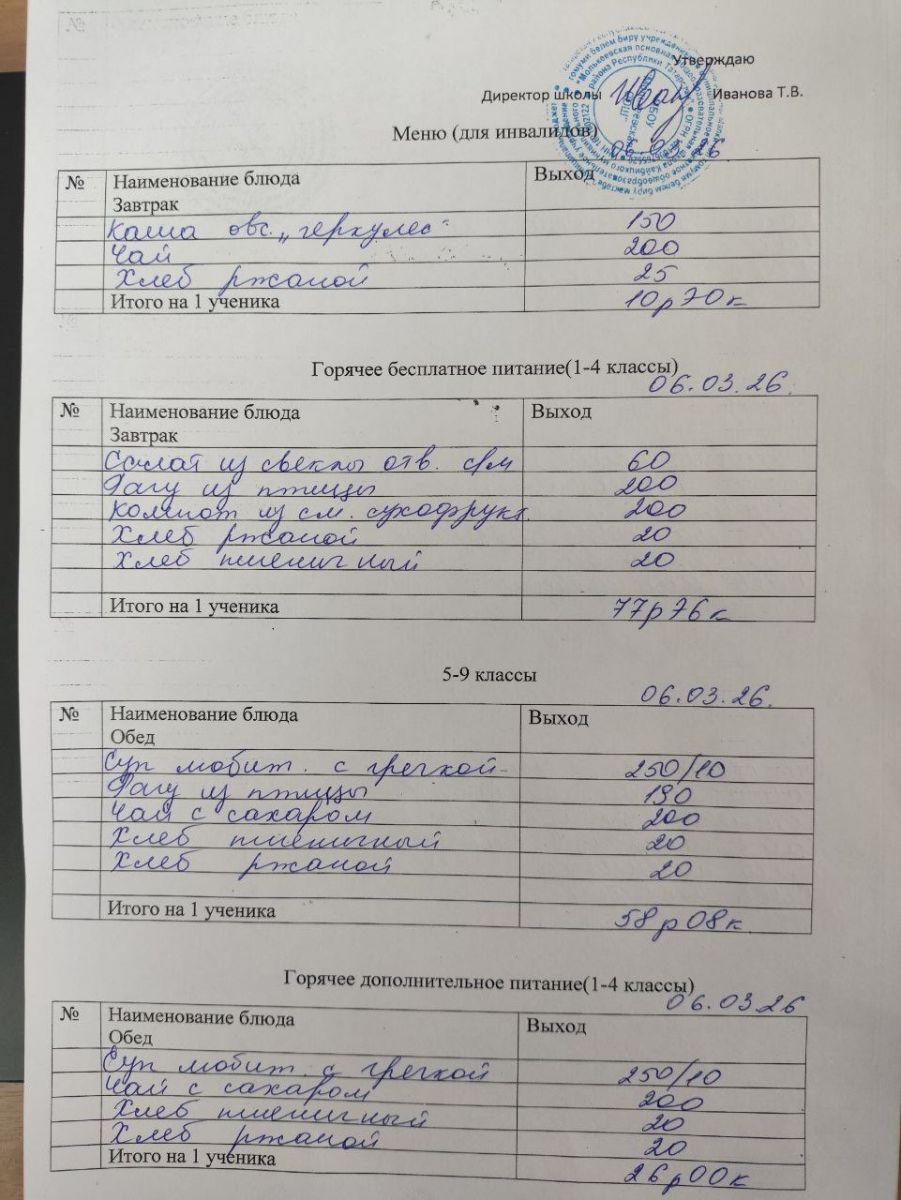 Утверждаю
Директор школы Иванова Т.В.
Меню (для инвалидов)
№ Наименование блюда Выход
Завтрак
Каша овс. „геркулес" 150
Чай 200
Хлеб ржаной 25
Итого на 1 ученика 10р70к
Горячее бесплатное питание(1-4 классы)
06.03.26.
№ Наименование блюда Выход
Завтрак
Салат из свеклы отв. с/м 60
Рагу из птицы 200
Компот из см. сухофрукт. 200
Хлеб ржаной 20
Хлеб пшеничный 20
Итого на 1 ученика 77р76к
5-9 классы
06.03.26.
№ Наименование блюда Выход
Обед
Суп любит. с гречкой 250/10
Рагу из птицы 190
Чай с сахаром 200
Хлеб пшеничный 20
Хлеб ржаной 20
Итого на 1 ученика 58р08к
Горячее дополнительное питание(1-4 классы)
06.03.26
№ Наименование блюда Выход
Обед
Суп любит. с гречкой 250/10
Чай с сахаром 200
Хлеб пшеничный 20
Хлеб ржаной 20
Итого на 1 ученика 26р00к